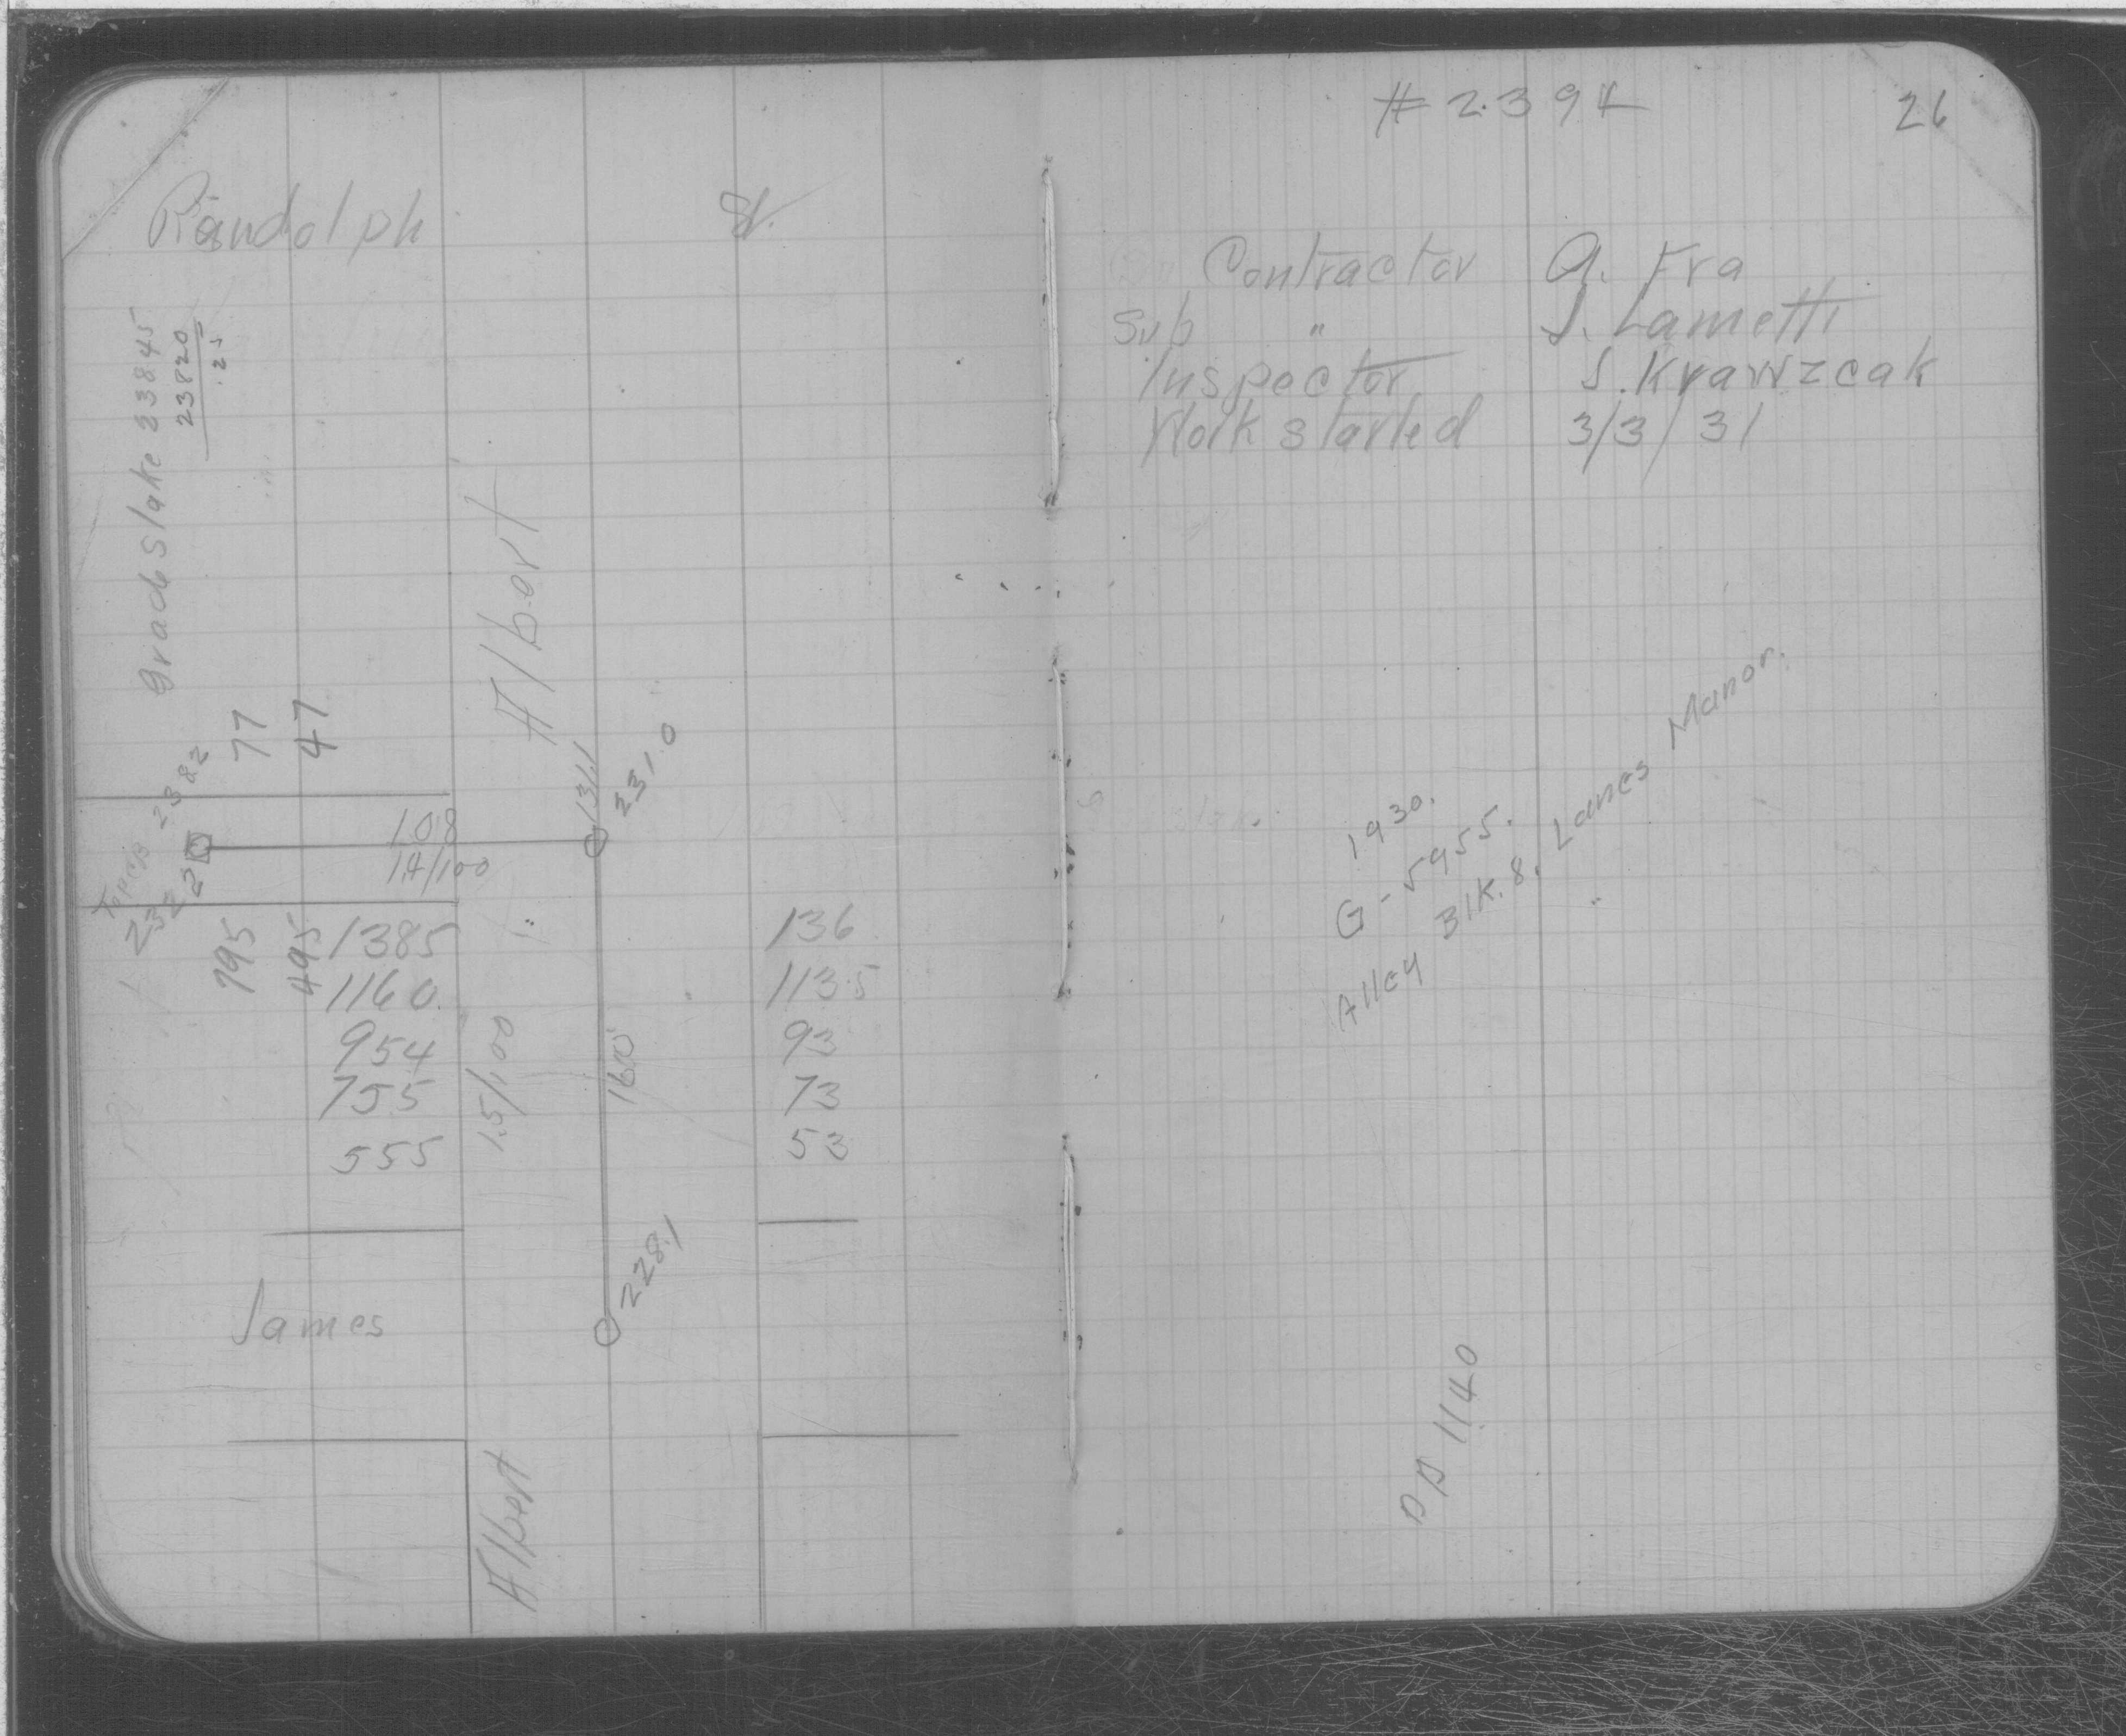 Randolph St.
grade stake 238.45
238 20
.25
Albert
77
47
2382
231.0
108
14/100
232 2
795
495
1385
1160
954
755
555
136
113.5
93
73
53
15/100
160'
228.1
James
Albert
#2394
26
Contractor A. Fra
Sub " J. Lametti
Inspector S. Krawzcak
Work started 3/3/31
1930.
G-5955.
Alley Blk. 8. Lanes Manor.
1140